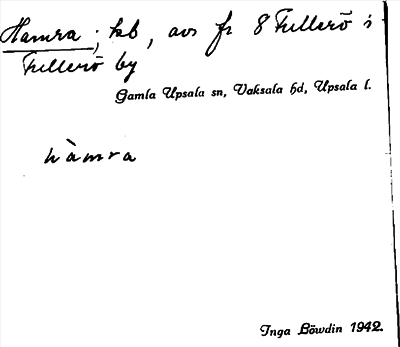 Hamra, kb, avs fr 8 Fullerö i
Fullerö by
Gamla Upsala sn, Vaksala hd, Upsala l.
hàmra
Inga Löwdin 1942.